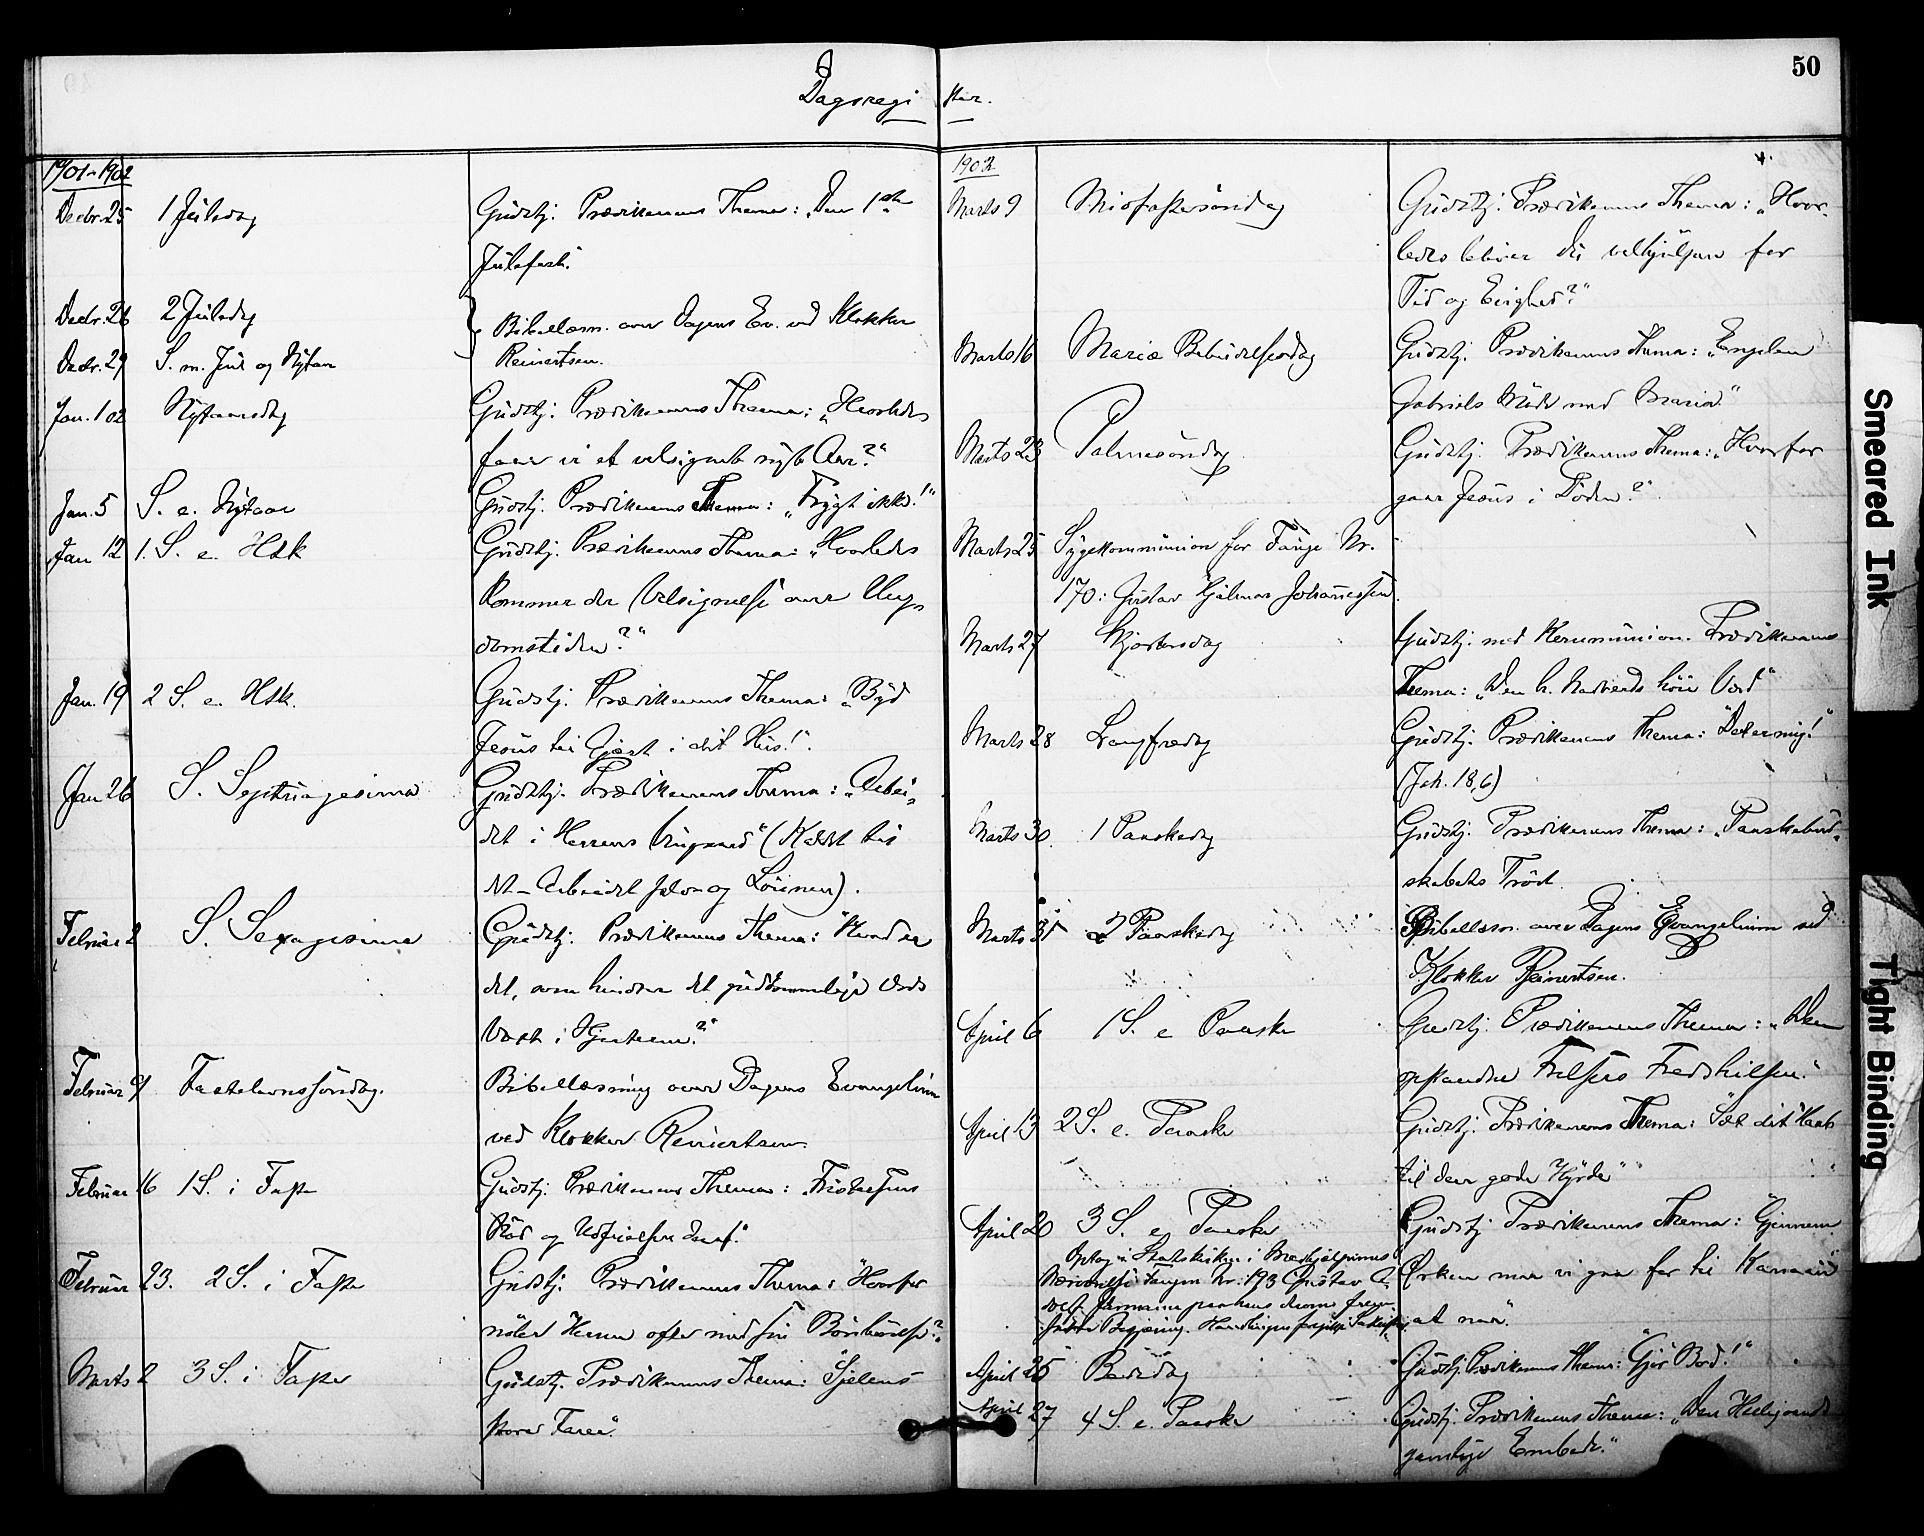 50
Dagsregister.
1901-1902
Decbr. 25 1 Juledag Gudstj. Prædikenens Thema: „Den 1ste
Julefest."
Decbr. 26 2 Juledag Bibellæsn. over Dagens Ev. ved Klokker
Decbr. 29 S. m. Jul og Nytaar Reinertsen.
Jan. 1 02 Nytaarsdag Gudstj. Prædikenens Thema: „Hvorledes
faaer vi et velsignet nyt Aar?"
Jan. 5 S. e. Nytaar Gudstj. Prædikenens Thema: „Frygt ikke!"
Jan 12 1. S. e. H3k Gudstj. Prædikenens Thema: „Hvorledes
kommer der Velsignelse over Ung-
domstiden?"
Jan. 19 2 S. e. H3k. Gudstj. Prædikenens Thema: „Byd
Jesus til Gjæst i dit Hus!".
Jan 26 S. Septuagesima Gudstj. Prædikenens Thema: „Arbei-
det i Herrens Vingaard" (Kaldet til
det – Arbeidet selv og Lönnen).
Februar 2 S. Sexagesima Gudstj. Prædikenens Thema: "Hvad er
det, som hindrer det guddommelige Ords
Væxt i Hjerterne?"
Februar 9 Fastelavnssöndag. Bibellæsning over Dagens Evangelium
ved Klokker Reinertsen
Februar 16 1 S. i Faste Gudstj. Prædikenens Thema: „Fristelsens
Nöd og Udfrielsen deraf."
Februar 23. 2 S. i Faste Gudstj. Prædikenens Thema: "Hvorfor
nöler Herren ofte med sin Bönhörelse?"
Marts 2 3 S. i Faste Gudstj. Prædikenens Thema: "Sjelens
store Fare".
1902
Marts 9 Midfastesöndag Gudstj. Prædikenens Thema: „Hvor-
ledes bliver du velhjulpen for
Tid og Evighed?"
Marts 16 Mariæ Bebudelsesdag Gudstj. Prædikenens Thema: „Engelen
Gabriels Möde med Maria."
Marts 23 Palmesöndag Gudstj. Prædikenens Thema: „Hvorfor
gaar Jesus i Döden?"
Marts 25 Sygekommunion for Fange Nr.
170: Gustav Hjalmar Johannessen.
Marts 27 Skjærtorsdag Gudstj. med Kommunion. Prædikenens
Thema: „Den h. Nadverds höie Værd"
Marts 28 Langfredag Gudstj. Prædikenens Thema: "Det er mig!"
(Joh. 18,6)
Marts 30. 1 Paaskedag Gudstj. Prædikenens Thema: „Paaskebud-
skabets Tröst.
Marts 31 2 Paaskedag Bibellæsn. over Dagens Evangelium ved
Klokker Reinertsen.
April 6 1 S. e Paaske Gudstj. Prædikenens Thema: „Den
opstandne Frelsers Fredshilsen."
April 13 2 S. e. Paaske Gudstj. Prædikenens Thema: "Sæt dit Haab
til den gode Hyrde"
April 20 3 S. e. Paaske Gudstj. Prædikenens Thema: "Gjennem
Optog i Statskirken i
Nærværelse Fangen Nr. 193 Gustav A- Ørken maa vi gaa for til Kanaan
dolf paa hans derom frem-
satte Begjæring. at naa".
April 25 Bededag Gudstj. Prædikenens Thema: "Gjör Bod!"
April 27 4 S. e. Paaske Gudstj. Prædikenens Thema: „Den Helligaands
gjerning Embede."
Smeared Ink
Tight Binding